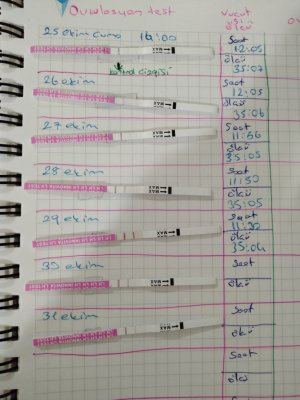 Ovulasyon test
Vucut
ısı
ölçü
25 ekim Cuma 16:00
Saat
12:05
ölçü
35:07
kontrol çizgisi
26 ekim
Saat
12:05
ölçü
35:06
27 ekim
Saat
11:56
ölçü
35:05
28 ekim
Saat
11:50
ölçü
35:05
29 ekim
Saat
11:30
ölçü
35:04
30 ekim
Saat
ölçü
31 ekim
Saat
ölçü
Saat
ölçü
MAX
MAX
MAX
MAX
MAX
MAX
MAX